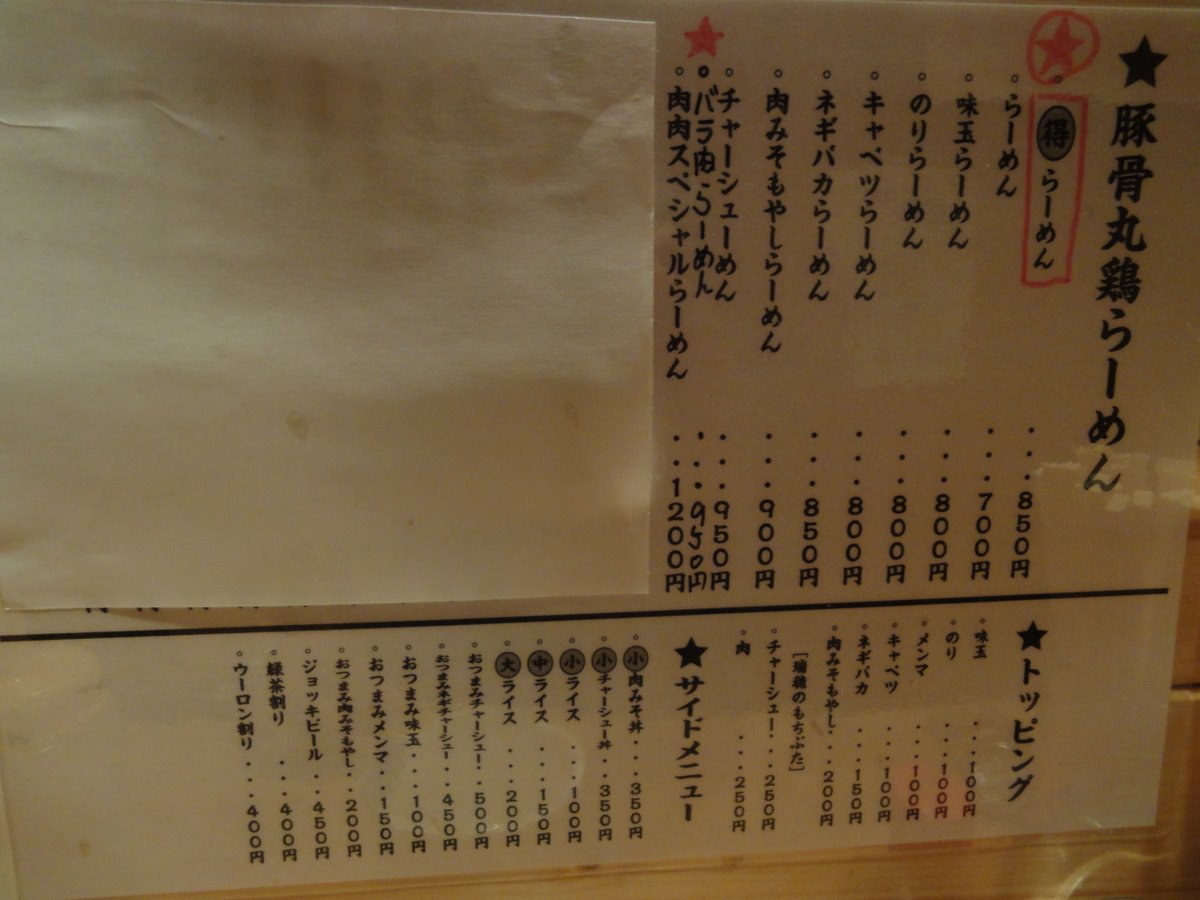 ★豚骨丸鶏らーめん
★。得らーめん・・・850円
。らーめん・・・700円
。味玉らーめん・・・800円
。のりらーめん・・・800円
。キャベツらーめん・・・800円
。ネギバカらーめん・・・850円
。肉みそもやしらーめん・・・900円
。チャーシューめん・・・950円
★。バラ肉らーめん・・・950円
。肉肉スペシャルらーめん・・・1200円
★トッピング
。味玉・・・100円
。のり・・・100円
。メンマ・・・100円
。キャベツ・・・100円
。ネギバカ・・・150円
。肉みそもやし・・200円
[瑞穂のもちぶた]
。チャーシュー・・250円
。肉・・・250円
★サイドメニュー
。小肉みそ丼・・・350円
。小チャーシュー丼・・・350円
。小ライス・・・100円
。中ライス・・・150円
。大ライス・・・200円
。おつまみチャーシュー・・500円
。おつまみネギチャーシュー・・450円
。おつまみ味玉・・・100円
。おつまみメンマ・・・150円
。おつまみ肉みそもやし・・200円
。ジョッキビール・・・450円
。緑茶割り・・・400円
。ウーロン割り・・・400円